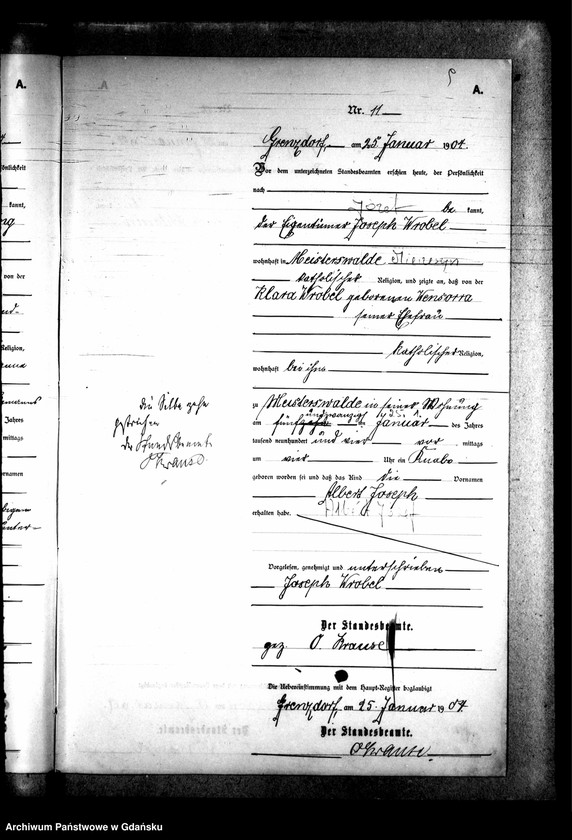 A.
A.
Nr. 11
Grenzdorf, am 25 Januar 1904.
Vor dem unterzeichneten Standesbeamten erschien heute, der Persönlichkeit
nach
Józef be kannt,
der Eigentümer Joseph Wrobel
wohnhaft in Meisterswalde
katholischer Religion, und zeigte an, daß von der
Klara Wrobel geborenen Wensorra
seiner Ehefrau
katholischer Religion,
wohnhaft bei ihm
zu Meisterswalde in seiner Wohnung
am fünfzehn undzwanzigsten Januar des Jahres
tausend neunhundert und vier vor mittags
um vier Uhr ein Knabe
geboren worden sei und daß das Kind die Vornamen
Albert Joseph
Józef
erhalten habe.
Vorgelesen, genehmigt und unterschrieben
Joseph Wrobel
Der Standesbeamte.
gez. O. Krause
Die Uebereinstimmung mit dem Haupt-Register beglaubigt
Grenzdorf, am 25. Januar 1904
Der Standesbeamte.
O Krause.
die Silbe zehn
gestrichen
der Standesbeamte
O Krause
kannt,
von der
Religion,
Jahres
mittags
Vornamen
Archiwum Państwowe w Gdańsku